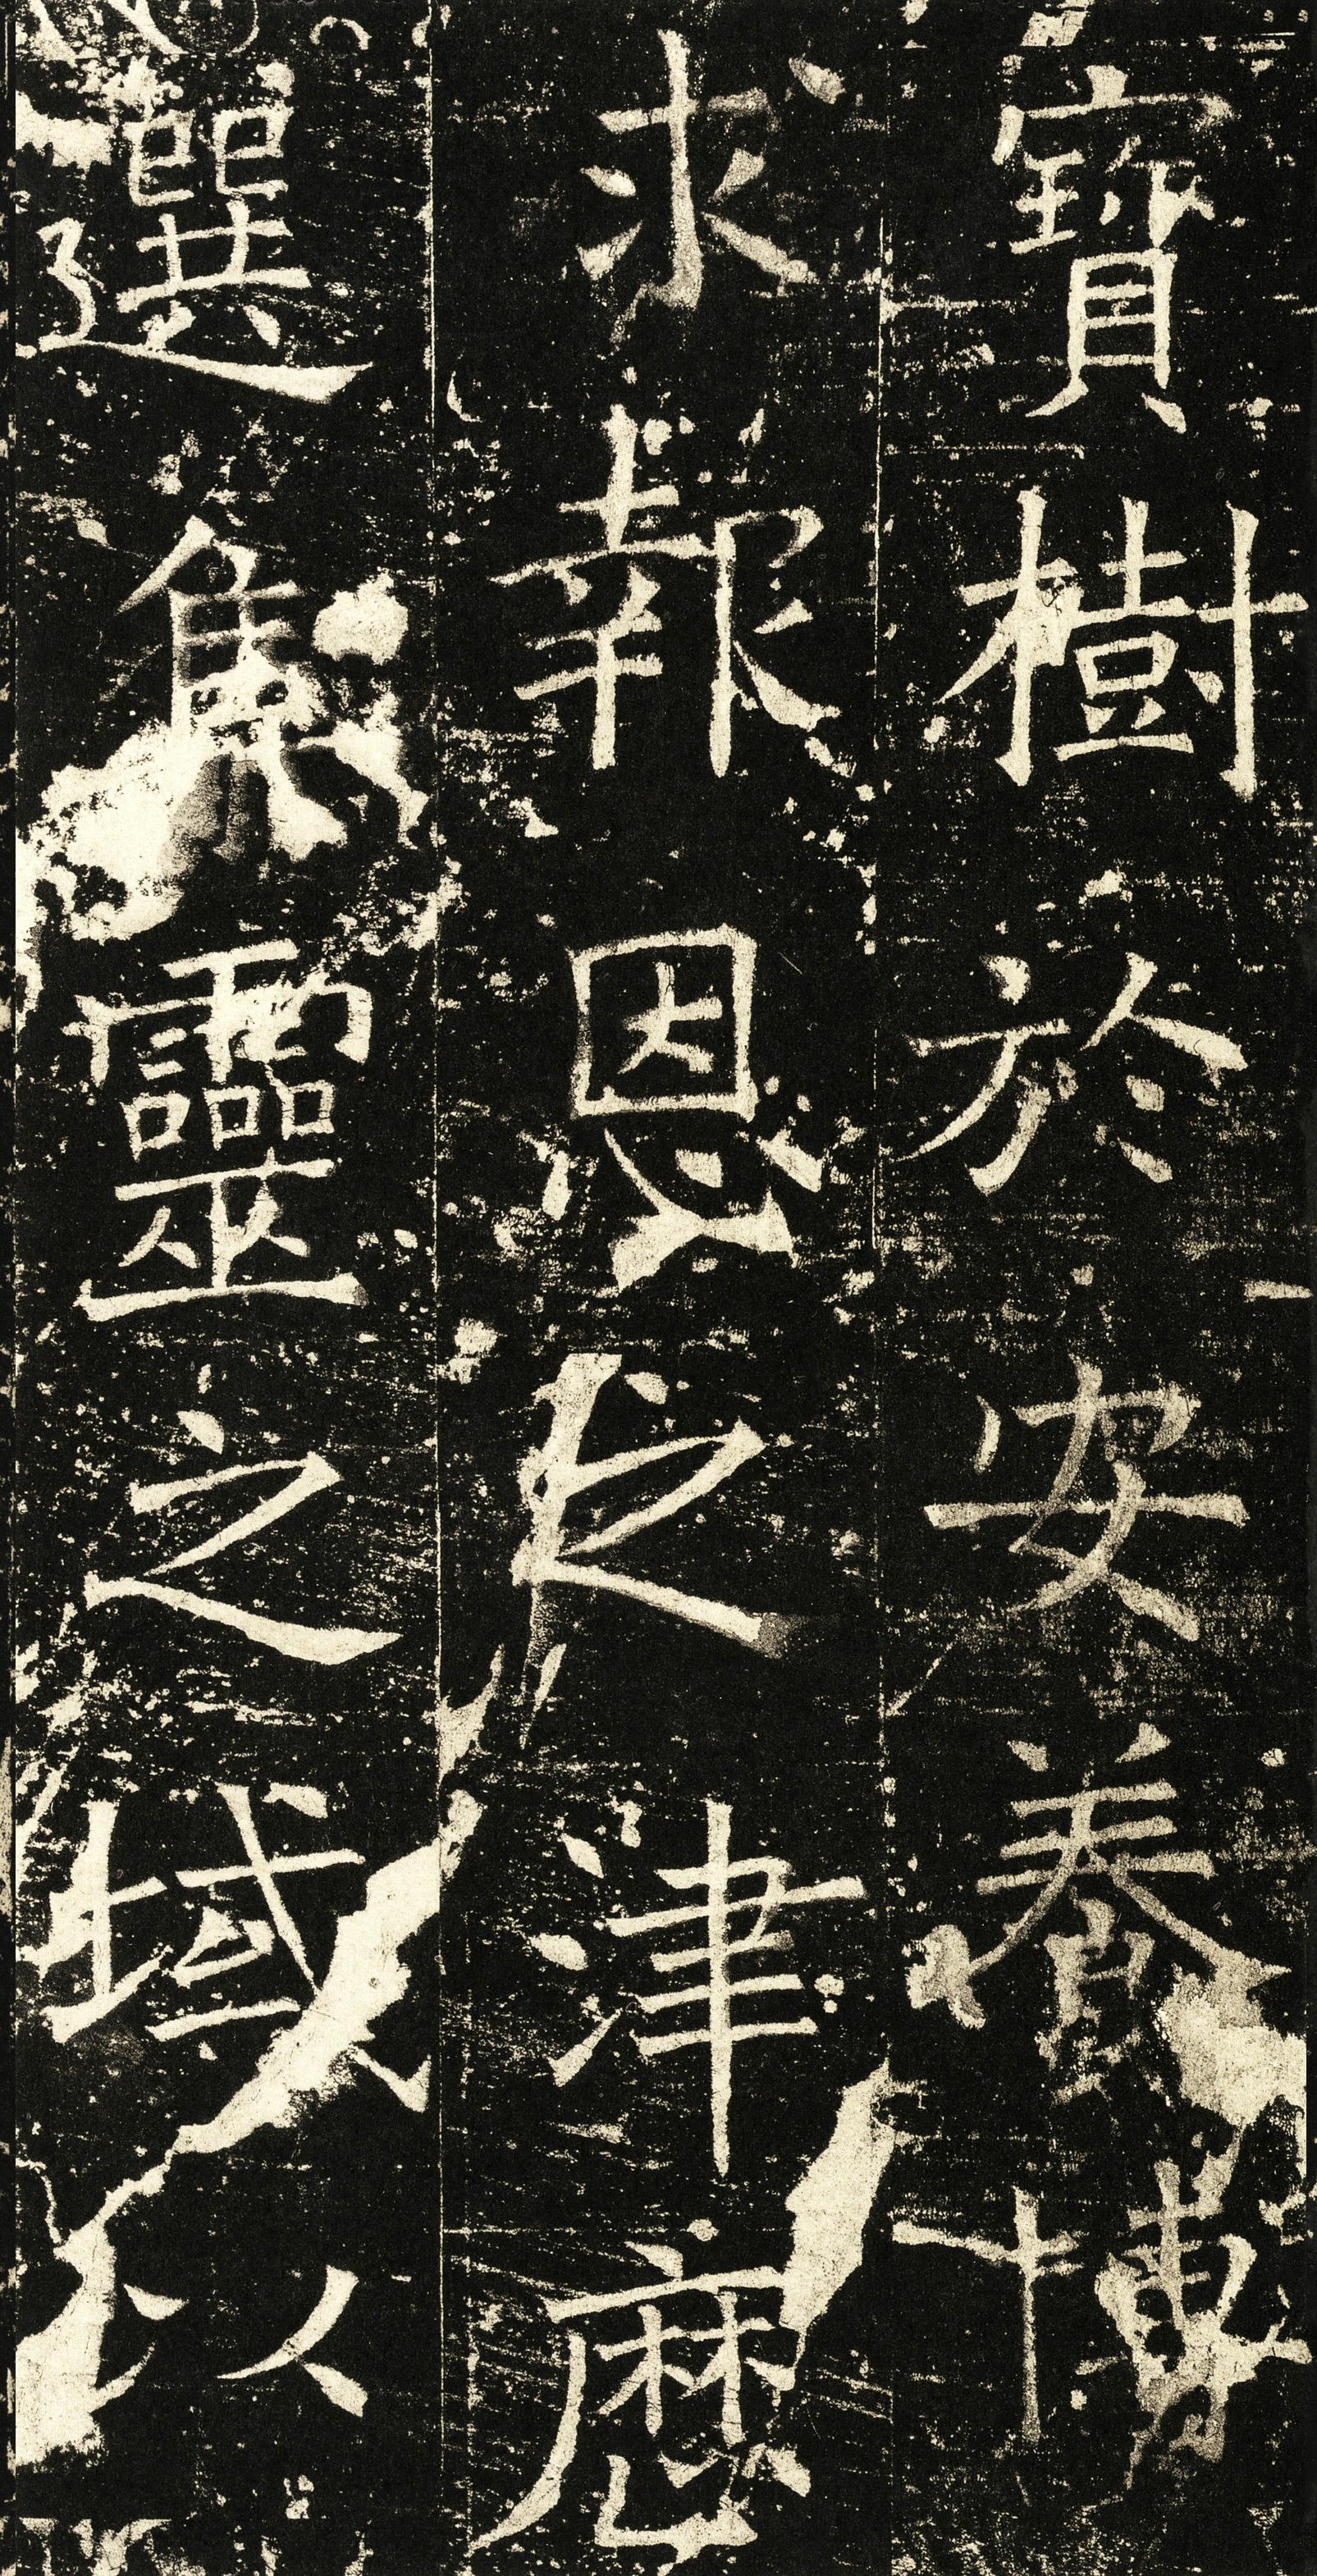 寶樹於安養博
求報恩之津麼
選集靈之域以